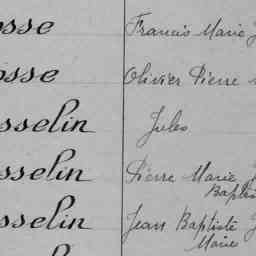 osse Francis Marie J
osse Olivier Pierre
sselin Jules
sselin Pierre Marie J
Baptis
sselin Jean Baptiste J
Marie